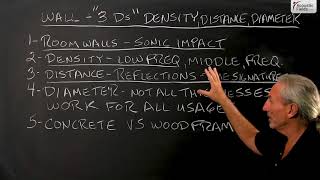 Acoustic Fields
WALL - "3 Ds" DENSITY, DISTANCE, DIAMETER
1- ROOM WALLS - SONIC IMPACT
2- DENSITY - LOW FREQ, MIDDLE, FREQ.
3- DISTANCE - REFLECTIONS - SIGNATURE
4- DIAMETER - NOT ALL THICKNESSES
WORK FOR ALL USAGE
5- CONCRETE VS WOOD FRAM